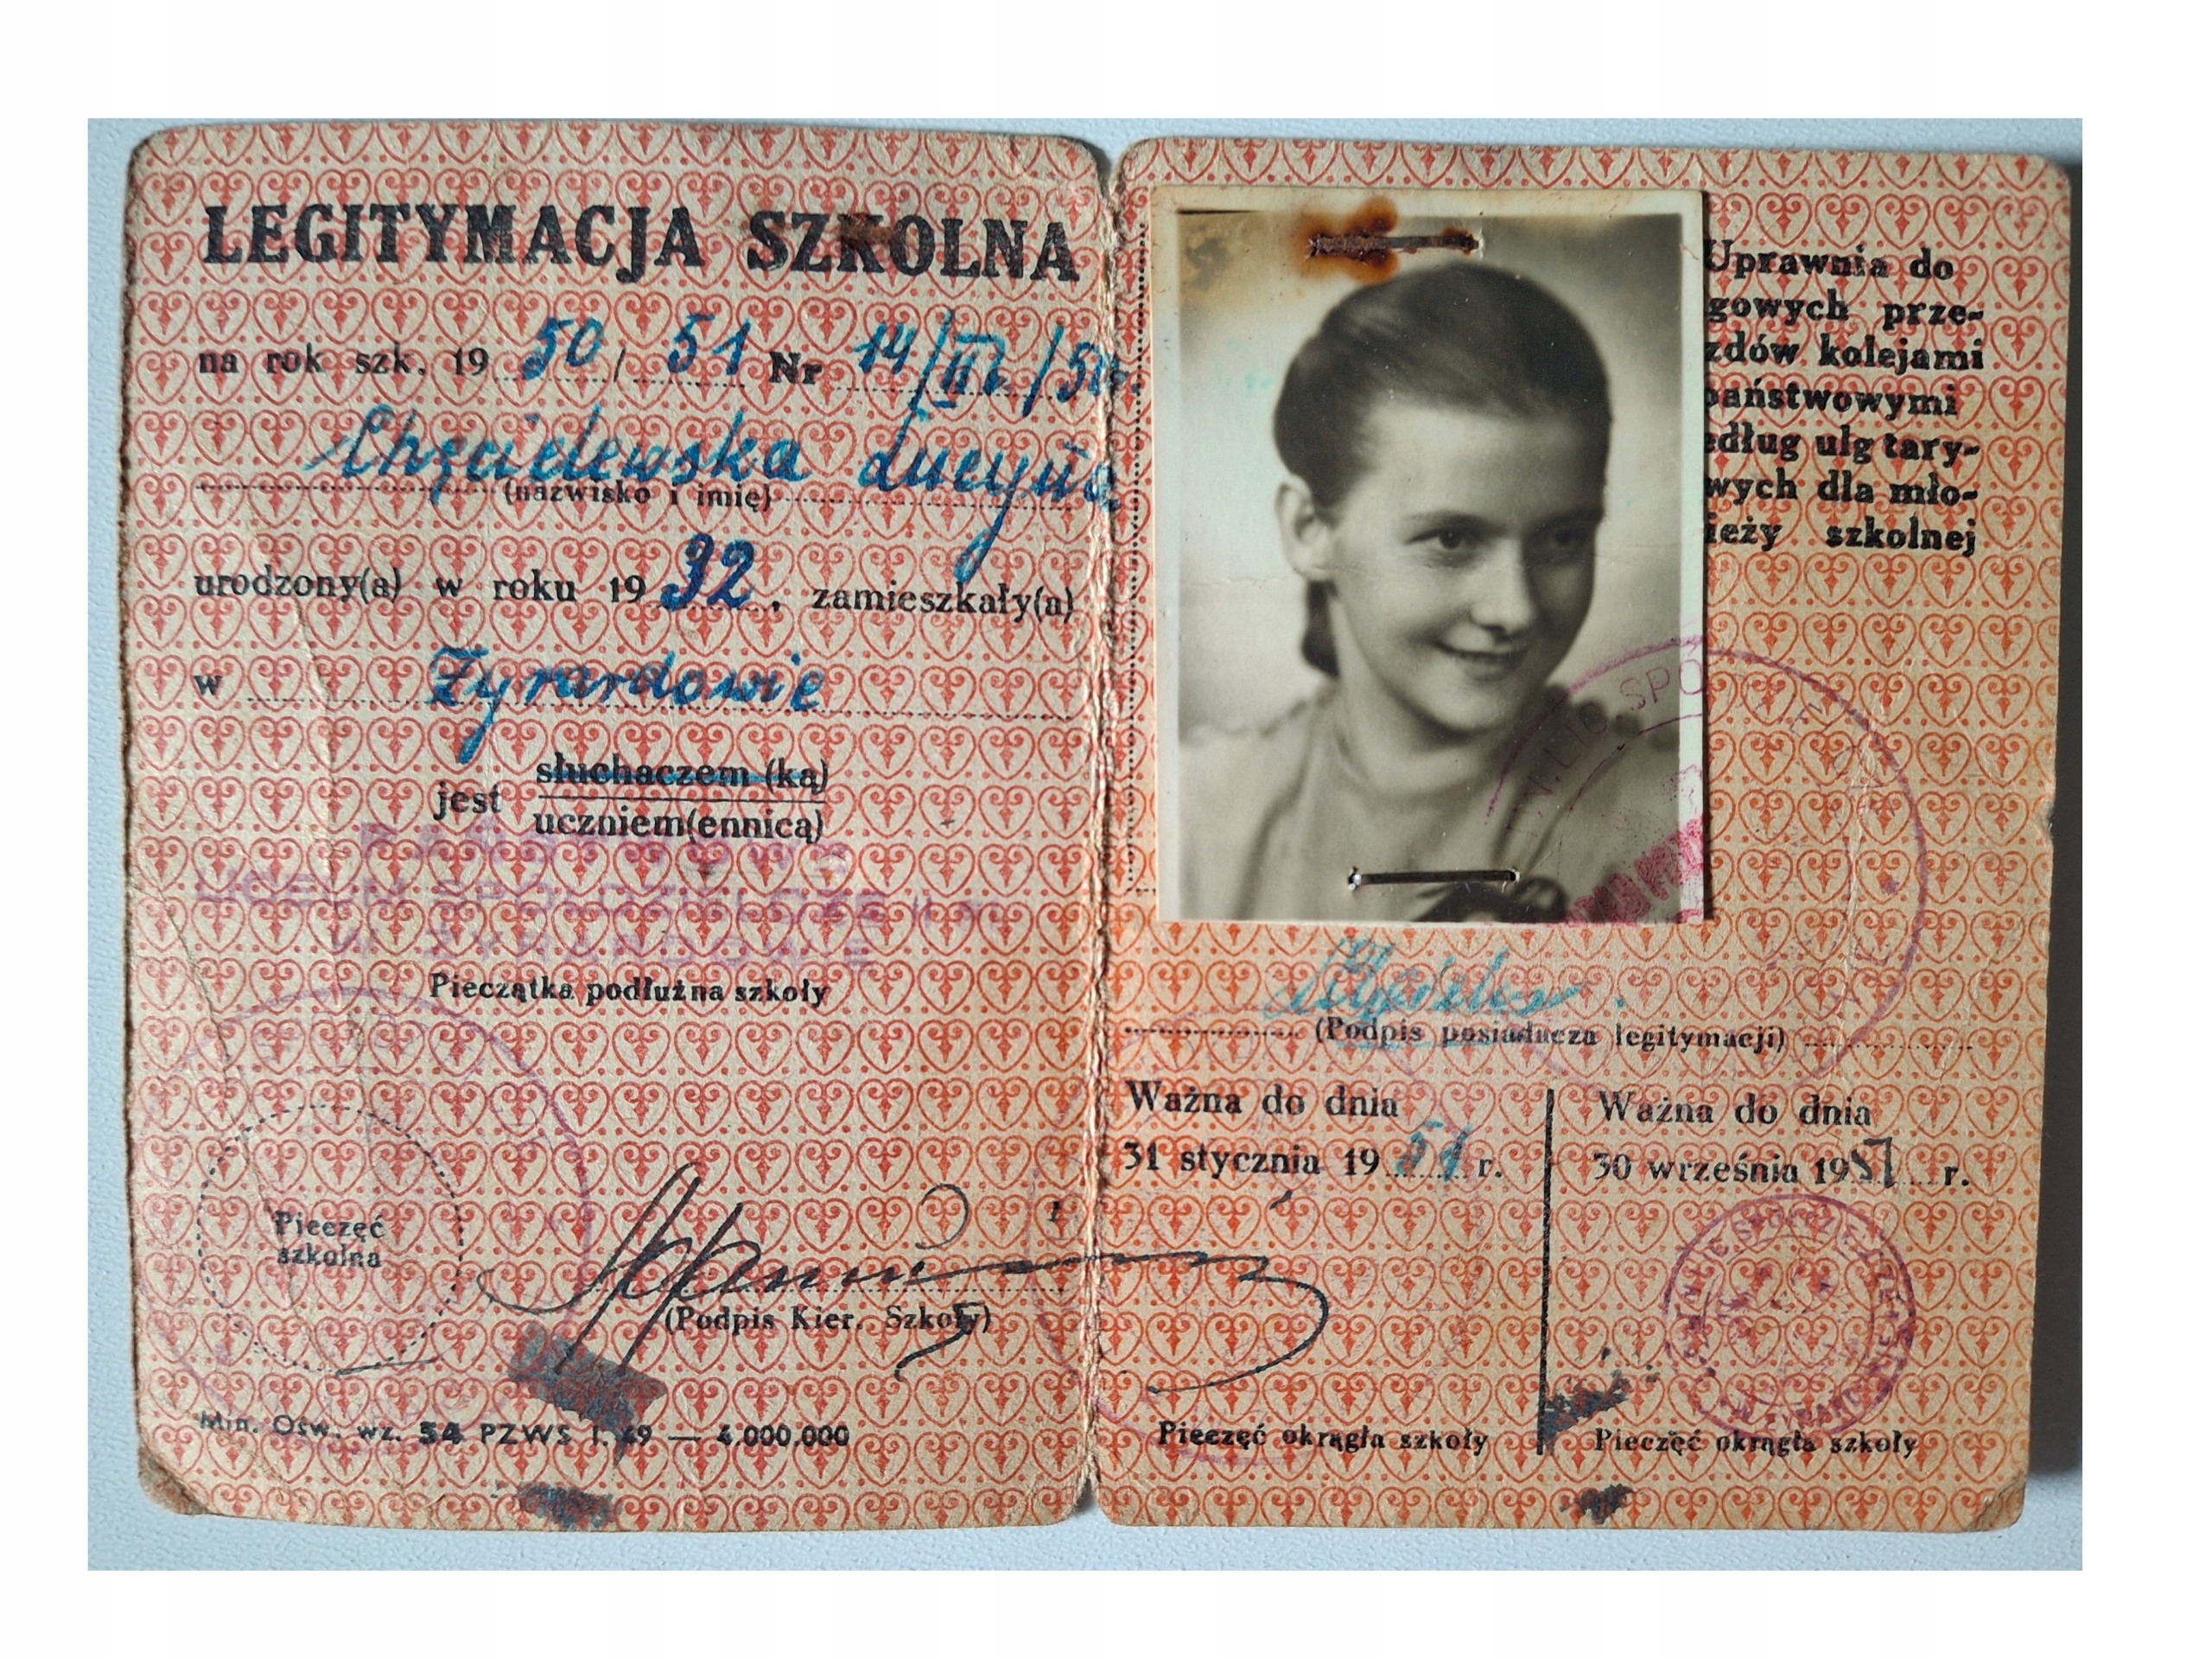 LEGITYMACJA SZKOLNA
na rok szk. 19 50 / 51 Nr 14/III/50
Chęcielewska Lucyna
(nazwisko i imię)
urodzony(a) w roku 19 32, zamieszkały(a)
w Żyrardowie
jest słuchaczem (ką)
uczniem(ennicą)
LICEUM SPÓŁDZIELCZE
W ŻYRARDOWIE
Pieczątka podłużna szkoły
Pieczęć
szkolna
(Podpis Kier. Szkoły)
Min. Ośw. wz. 54 PZWS I. 49 — 4.000.000
Uprawnia do
gowych prze-
zdów kolejami
państwowymi
edług ulg tary-
wych dla mło-
ieży szkolnej
(Podpis posiadacza legitymacji)
Ważna do dnia
31 stycznia 19 51 r.
Pieczęć okrągła szkoły
Ważna do dnia
30 września 1951 r.
Pieczęć okrągła szkoły